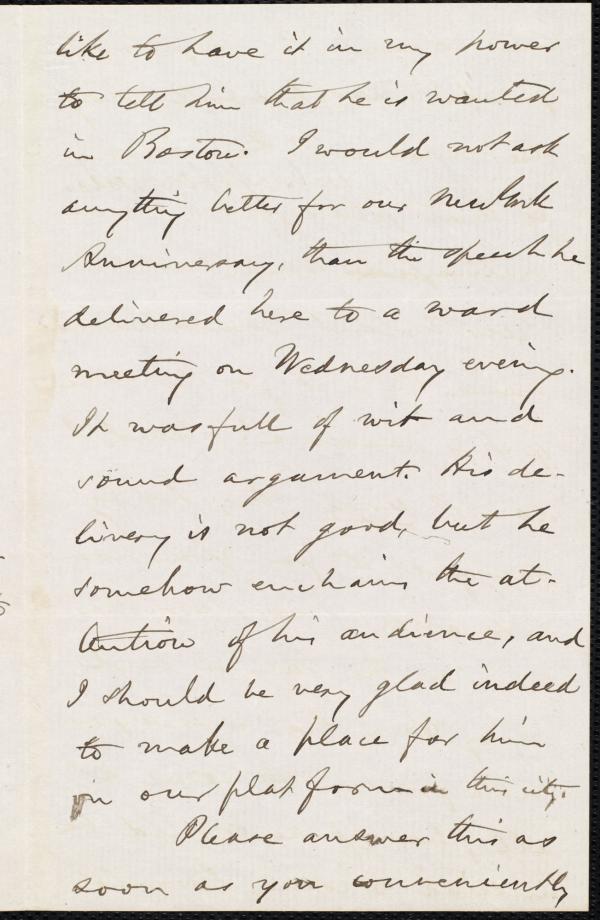 like to have it in my power
to tell him that he is wanted
in Boston. I would not ask
anything better for our New York
Anniversary, than the speech he
delivered here to a ward
meeting on Wednesday evening.
It was full of wit and
sound argument. His de-
livery is not good, but he
somehow enchains the at-
tention of his audience, and
I should be very glad indeed
to make a place for him
on our platform in this city.
Please answer this as
soon as you conveniently